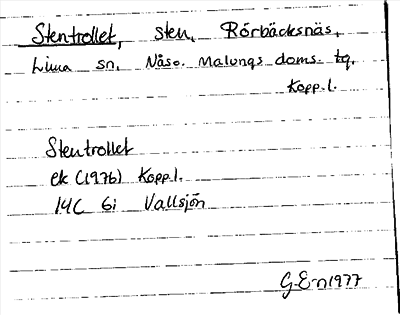 Stentrollet, sten, Rörbäcksnäs,
Lima sn. Nåso. Malungs doms. tg.
Kopp.l.
Stentrollet
ek (1976) Kopp.l.
14C 6i Vallsjön
G.E-n 1977